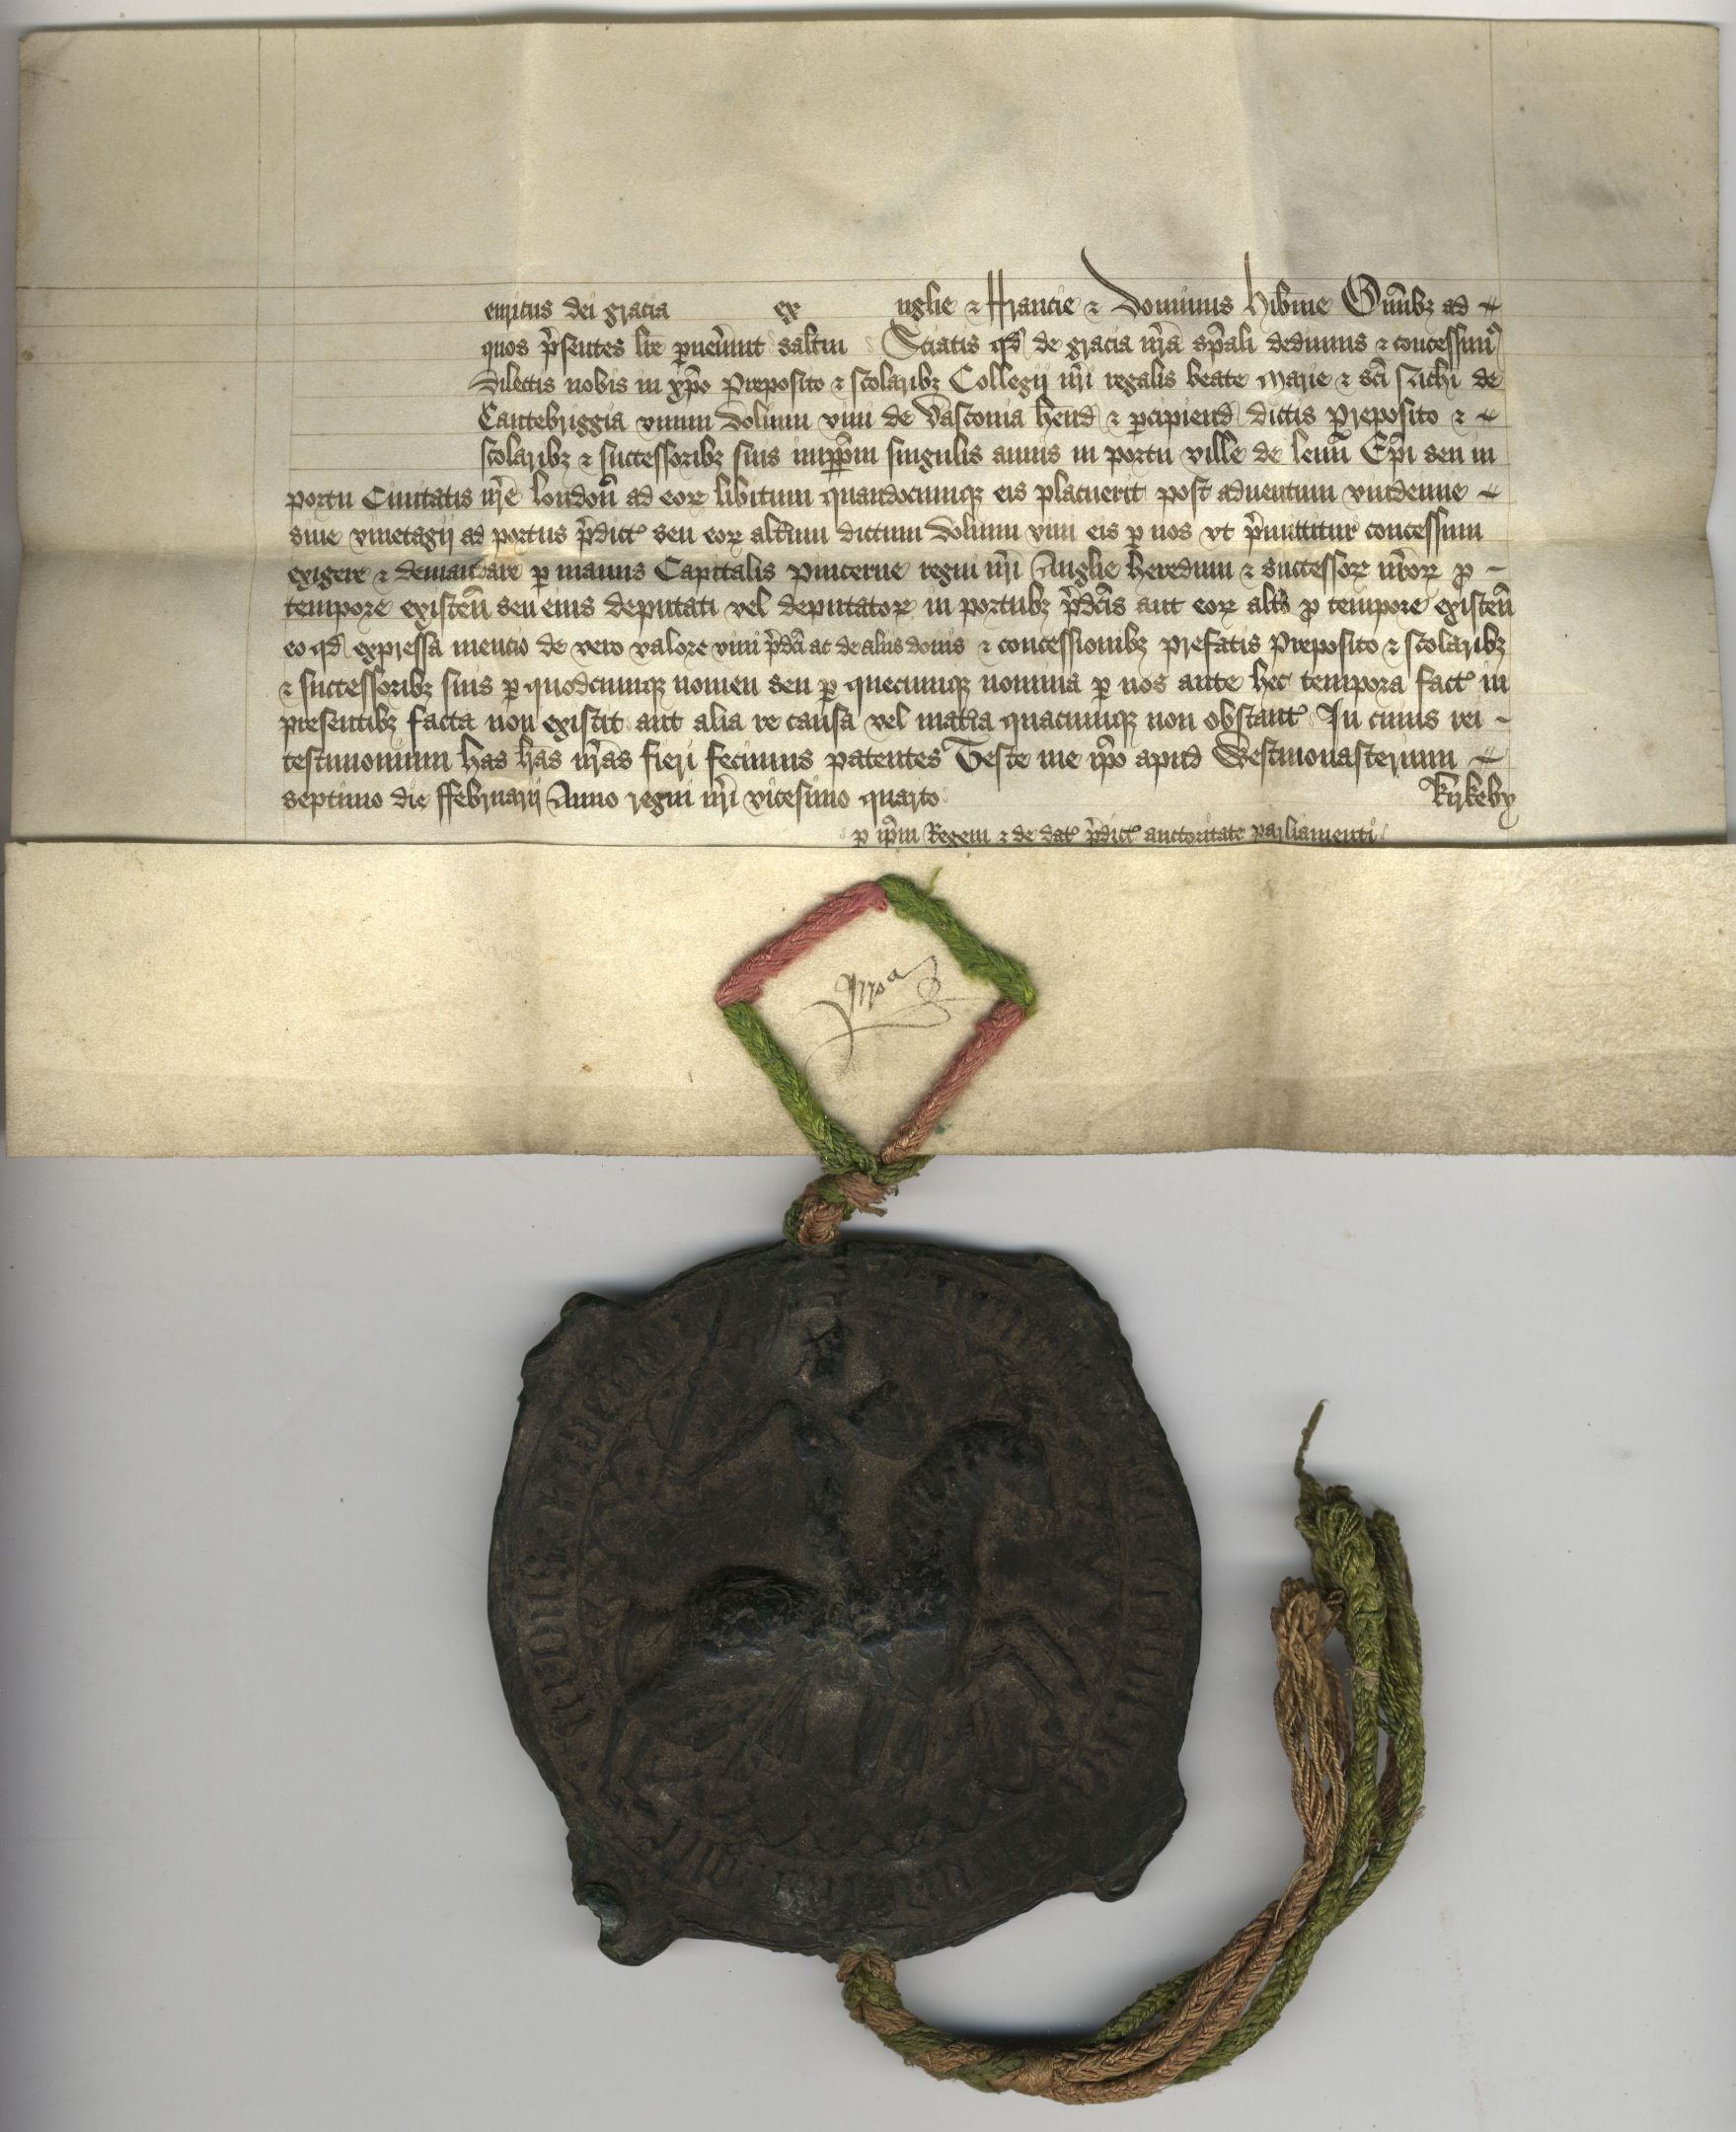 enricus dei gracia ex nglie & Francie & Dominus hib̄nie Om̄ibꝫ ad
quos p̄sentes lr̄e p̱uen̄int salt̄m Sciatis qd̄ de gracia nr̄a sp̄ali dedimus & concessimꝰ
Dilectis nobis in xp̄o Preposito & scolaribꝫ Collegij nr̄i regalis beate Marie & sc̄i Nichi de
Cantebriggia vnum Dolium vini de Vasconia hend̄ & p̱cipiend̄ dictis Preposito &
scolaribꝫ & successoribꝫ suis imp̱p̄m singulis annis in portu ville de lenn̄ Ep̄i seu in
portu Ciuitatis nr̄e london̄ ad eoꝝ libitum quandocumqꝫ eis placuerit post aduentum vindemie
siue vinetagij ad portus p̄dict̄ seu eoꝝ alt̄um dictum Dolium vini eis p̱ nos vt p̄mittitur concessum
exigere & demandare p̱ manus Capitalis Pincerne regni nr̄i Anglie heredum & successoꝝ nr̄oꝝ ꝓ
tempore existen̄ seu eius deputati vel deputatoꝝ in portubꝫ p̄dc̄is aut eoꝝ alt̄o ꝓ tempore existen̄
eo qd̄ expressa mencio de vero valore vini p̄dc̄i ac de aliis donis & concessionibꝫ prefatis Preposito & scolaribꝫ
& successoribꝫ suis p̱ quodcumqꝫ nomen seu p̱ quecumqꝫ nomina p̱ nos ante hec tempora fact̄ in
presentibꝫ facta non existit aut alia re causa vel mat̄ia quacumqꝫ non obstant̄ In cuius rei
testimonium has has lr̄as fieri fecimus patentes Teste me ip̄o apud Westmonasterium
septimo die ffebruarij Anno regni nr̄i vicesimo quarto
Kirkeby
p̱ ip̄m Regem & de dat̄ p̄dict̄ auctoritate parliamenti
Irroᵃ